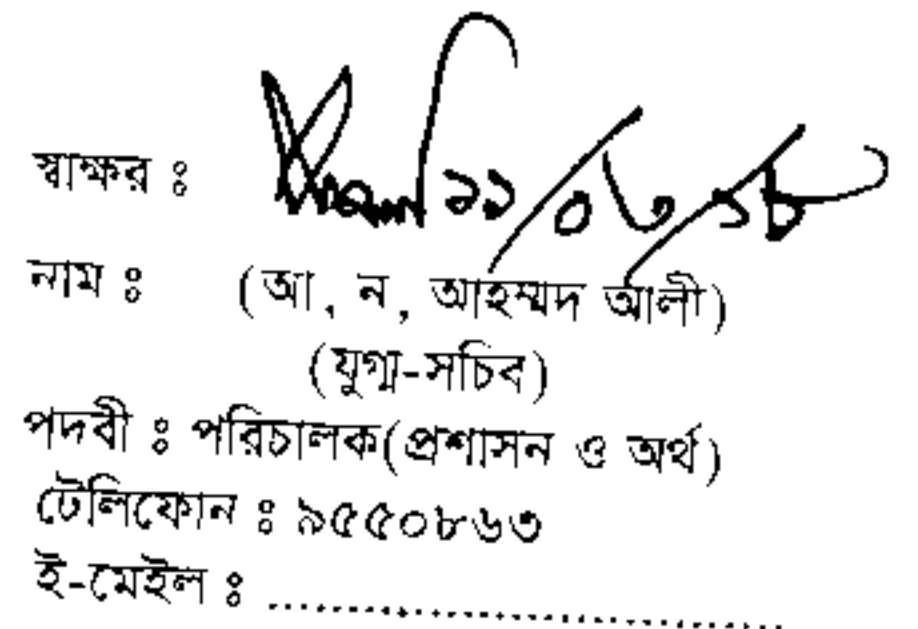 স্বাক্ষর ঃ ১১/০৬/১৮
নাম ঃ (আ, ন, আহম্মদ আলী)
(যুগ্ম-সচিব)
পদবী ঃ পরিচালক(প্রশাসন ও অর্থ)
টেলিফোন ঃ ৯৫৫০৮৬৩
ই-মেইল ঃ ........................................